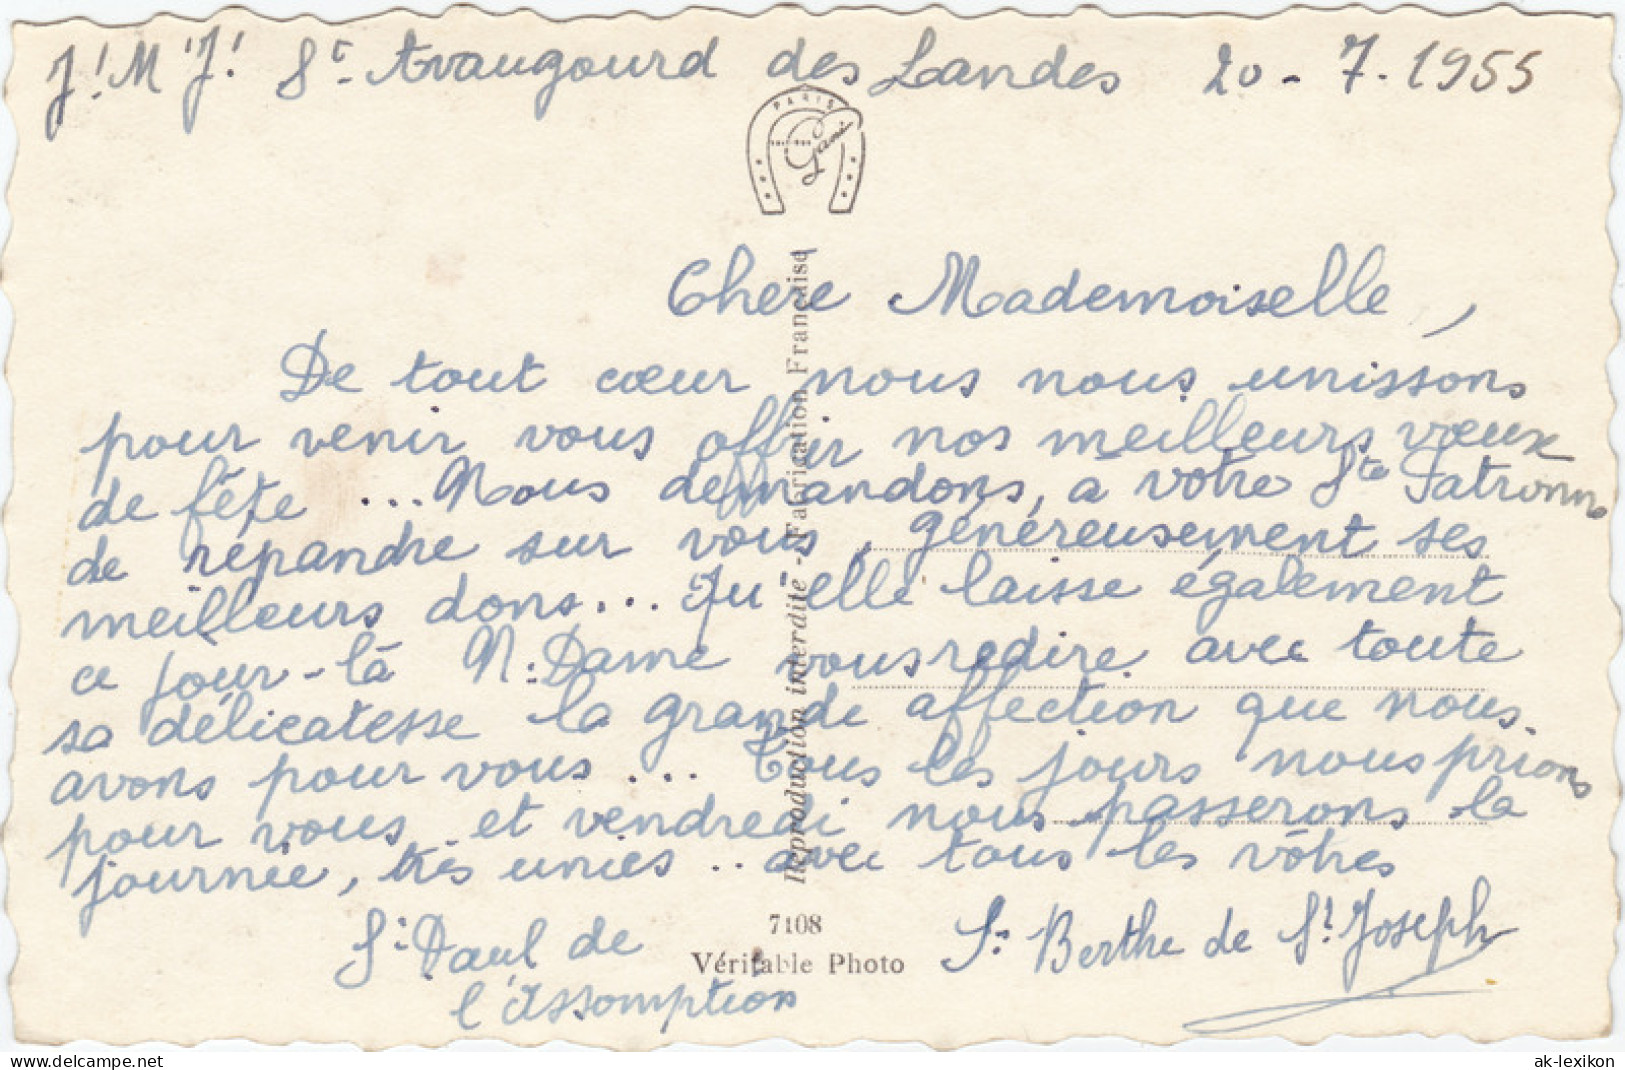 J! M! J! St Avaugourd des Landes 20-7.1955
PARIS
Chère Mademoiselle,
De tout cœur nous nous unissons
pour venir vous offrir nos meilleurs vœux
de fête ... Nous demandons, à votre Ste Patronne
de répandre sur vous, généreusement ses
meilleurs dons ... Qu'elle laisse également
ce jour-là N. Dame vous redire avec toute
sa délicatesse la grande affection que nous
avons pour vous ... Tous les jours nous prions
pour vous et vendredi nous passerons la
journée, très unies .. avec tous les vôtres
Sr Paul de
l'Assomption
Sr Berthe de St Joseph
Reproduction interdite - Fabrication Française
7108
Véritable Photo
www.delcampe.net
ak-lexikon